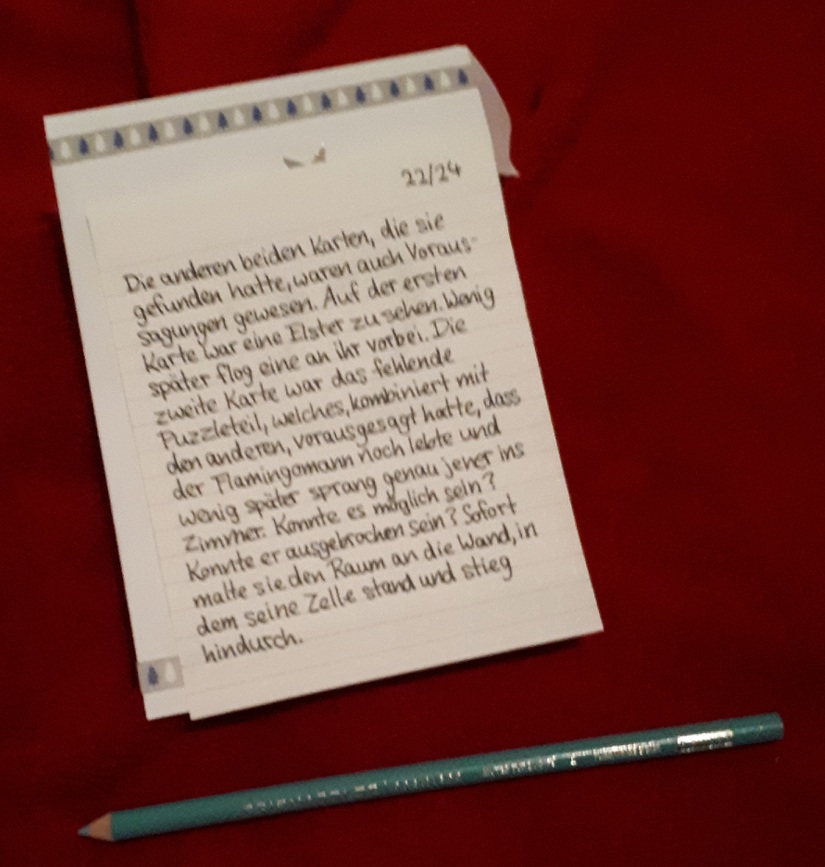 22/24
Die anderen beiden Karten, die sie
gefunden hatte, waren auch Voraus-
sagungen gewesen. Auf der ersten
Karte war eine Elster zu sehen. Wenig
später flog eine an ihr vorbei. Die
zweite Karte war das fehlende
Puzzleteil, welches, kombiniert mit
den anderen, vorausgesagt hatte, dass
der Flamingomann noch lebte und
wenig später sprang genau jener ins
Zimmer. Konnte es möglich sein?
Konnte er ausgebrochen sein? Sofort
malte sie den Raum an die Wand, in
dem seine Zelle stand und stieg
hindurch.